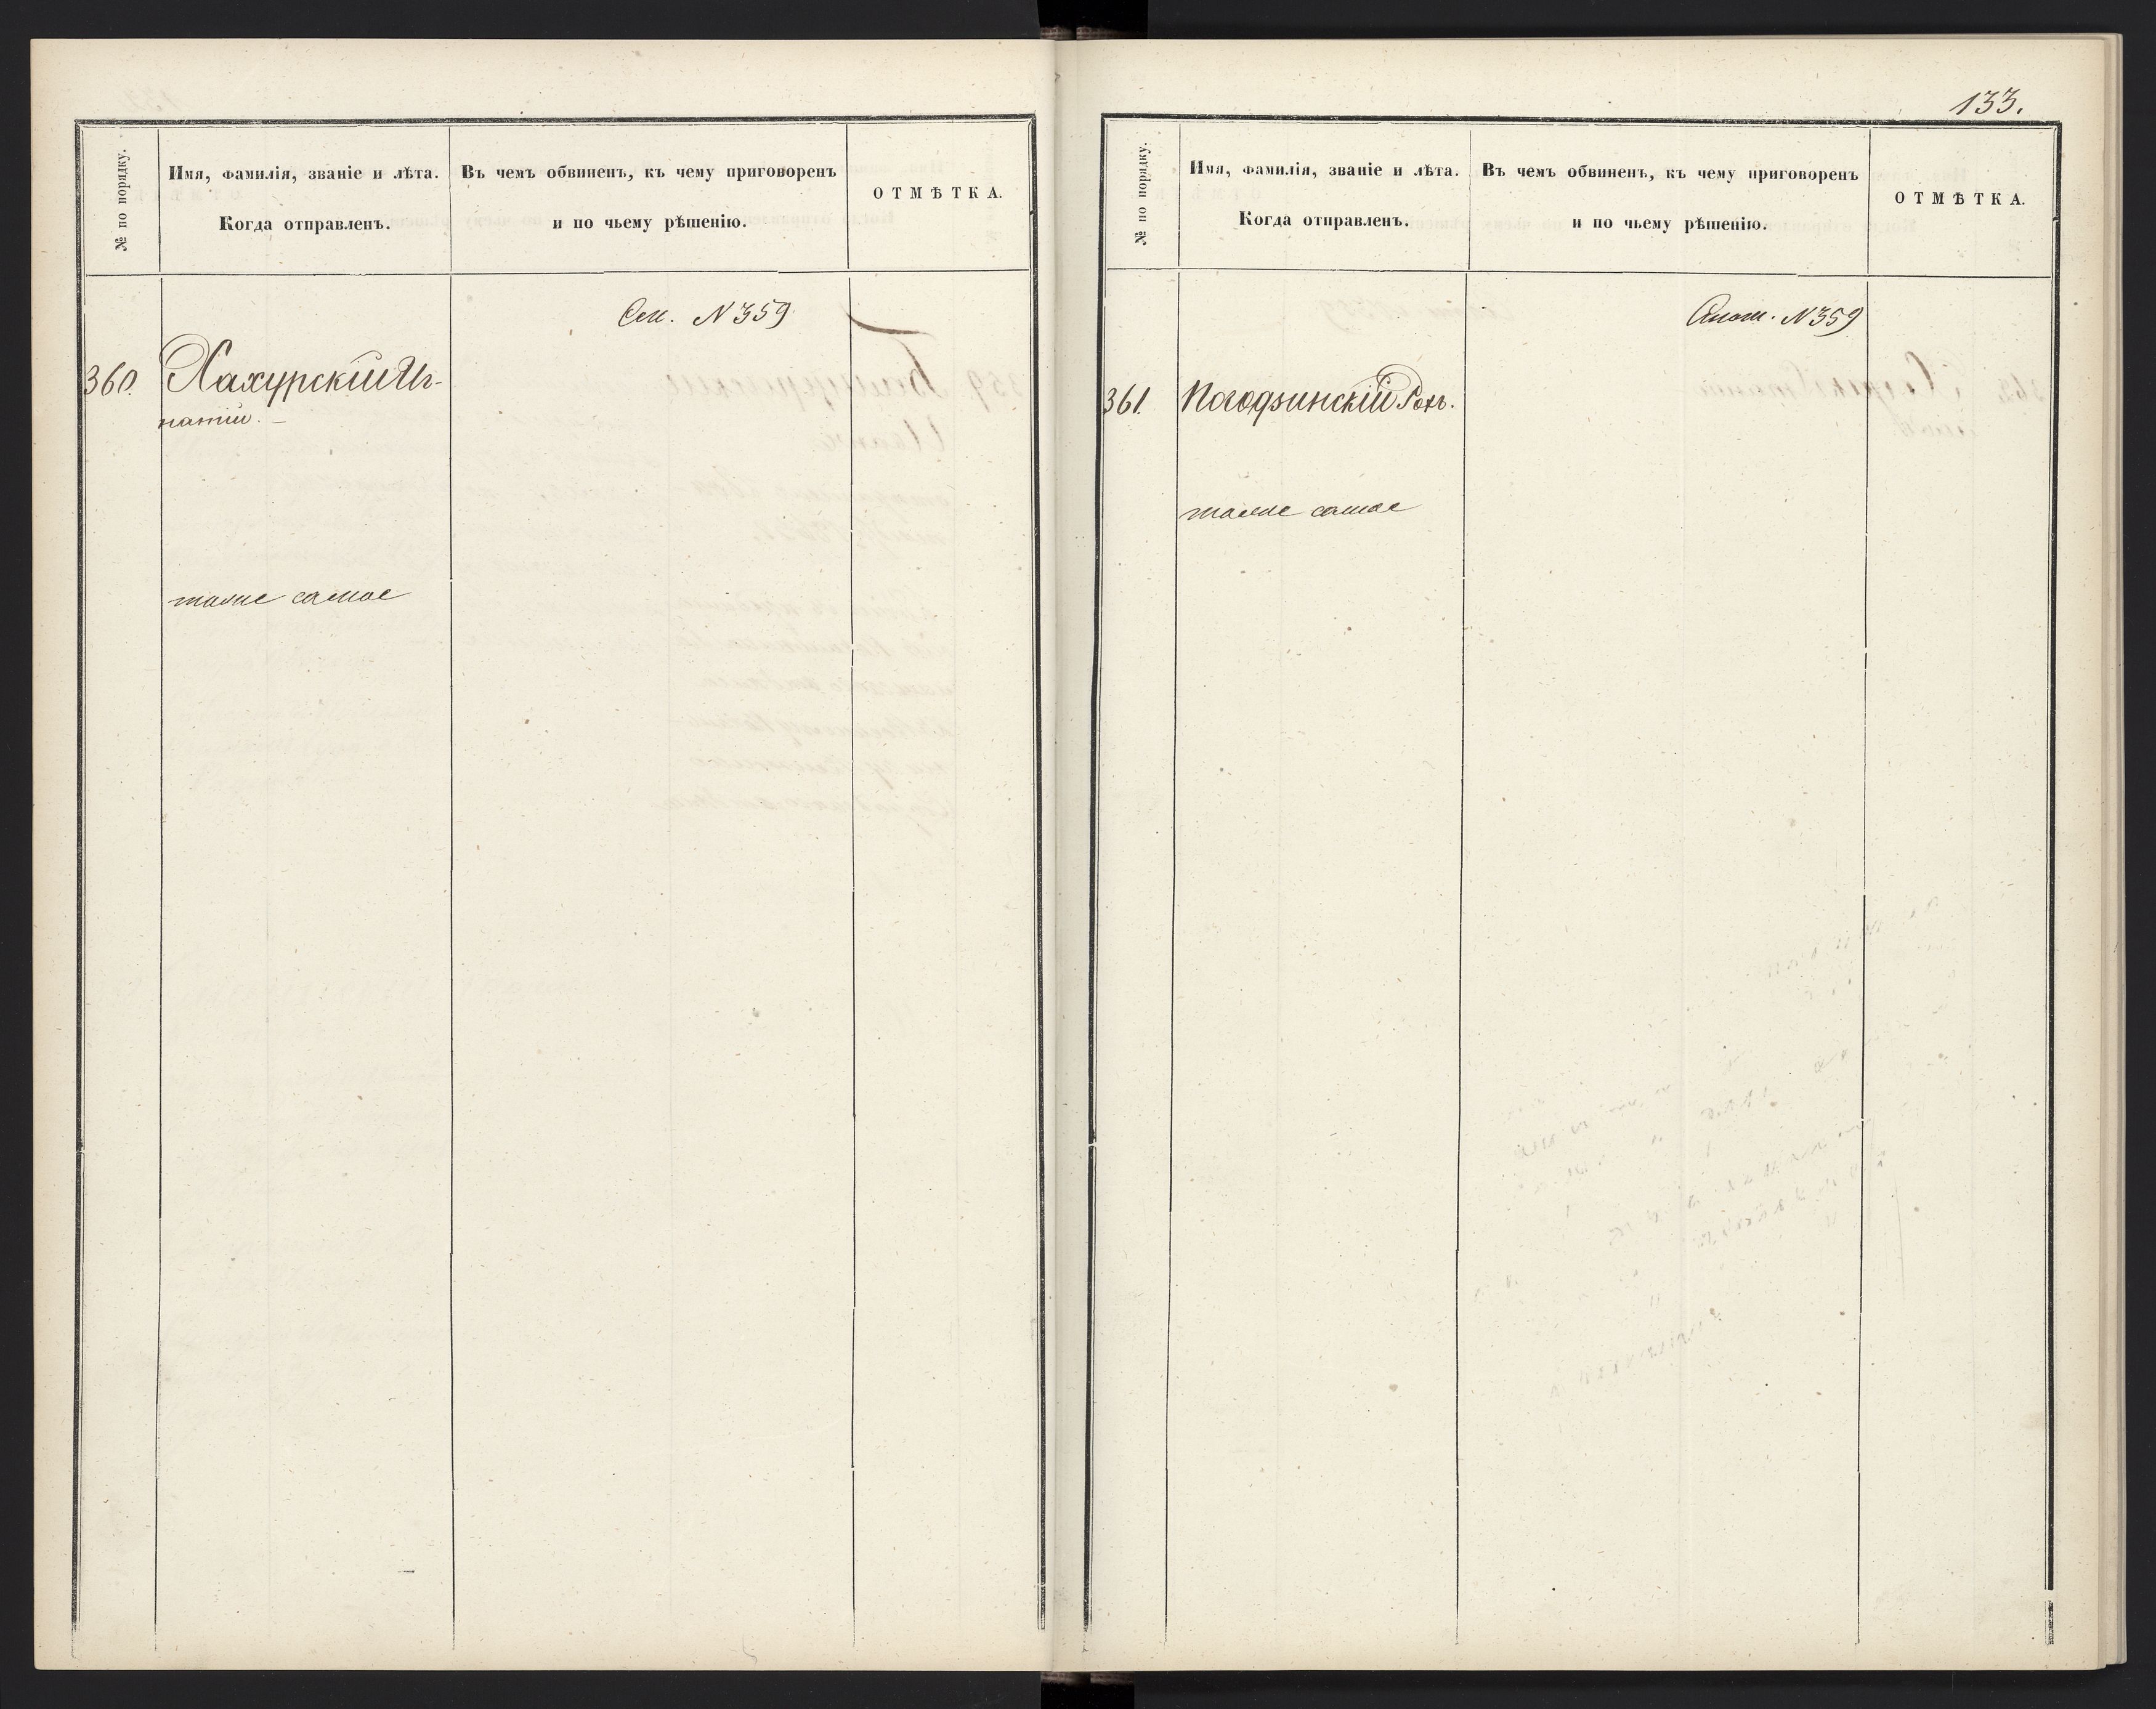 № по порядку.
Имя, фамилія, званіе и лѣта.
Когда отправленъ.
Въ чемъ обвиненъ, къ чему приговоренъ
и по чьему рѣшенію.
ОТМѢТКА.
N 359
360.
Хахурскій Иг-
натій. –
также самое
133.
№ по порядку.
Имя, фамилія, званіе и лѣта.
Когда отправленъ.
Въ чемъ обвиненъ, къ чему приговоренъ
и по чьему рѣшенію.
ОТМѢТКА.
N 359
361.
Погодзинскій Рохъ.
также самое